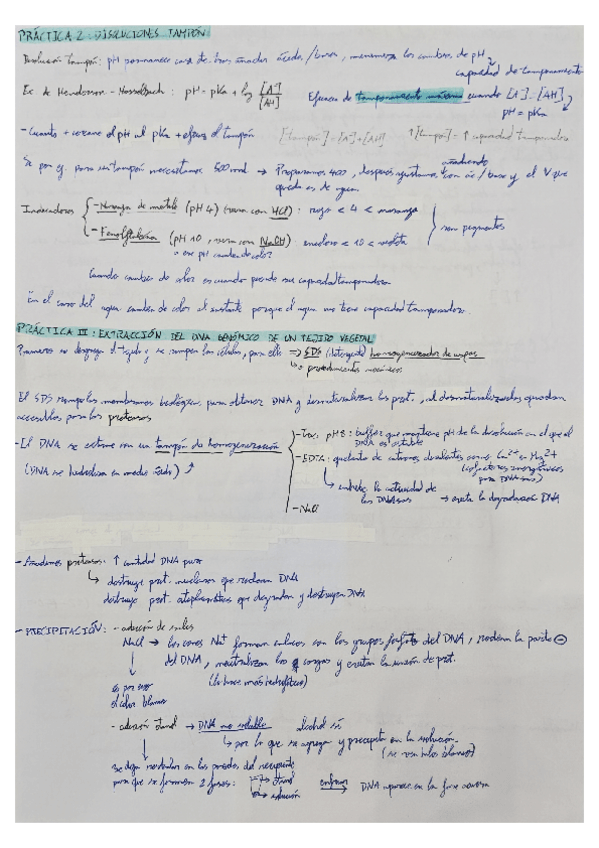 PRÁCTICA 2: DISOLUCIONES TAMPÓN
Disolución tampón: pH permanece casi de tras añadir ácidos/bases, minimiza los cambios de pH,
capacidad de tamponamiento
Ec. de Henderson-Hasselbach: pH = pKa + log [A⁻]/[AH]
Eficacia de tamponamiento máximo cuando [A⁻]=[AH]
pH = pKa
- Cuanto + cercano el pH al pKa + eficaz el tampón
[tampón] = [A⁻]+[AH]
↑[tampón] = ↑ capacidad tampón
Si por ej. para un tampón necesitamos 500 ml → Preparamos 400, después ajustamos añadiendo con ác/base y el V que
queda es de agua
Indicadores
- Naranja de metilo (pH 4) (vira con HCl): rojo < 4 < naranja
- Fenolftaleína (pH 10, vira con NaOH): incoloro < 10 < violeta
son pigmentos
↳ ese pH cambia de color?
Cuando cambia de color es cuando pierde su capacidad tamponadora
En el caso del agua cambia de color al instante porque el agua no tiene capacidad tamponadora.
PRÁCTICA III: EXTRACCIÓN DEL DNA GENÓMICO DE UN TEJIDO VEGETAL
Primero se disgrega el tejido y se rompen las células, para ello ⇒ SDS (detergente) homogeneizador de
↳ procedimientos mecánicos
El SDS rompe las membranas biológicas para obtener DNA y desnaturalizar las prot., al desnaturalizarlas quedan
accesibles para las proteasas
- El DNA se extrae con un tampón de homogeneización
(DNA se hidroliza en medio ácido)
- Tris, pH 8: buffer que mantiene pH de la disolución en el que el
DNA es estable
- EDTA: quelante de cationes divalentes como Ca²⁺ o Mg²⁺
(cofactores inorgánicos
para DNAasas)
↳ inhibe la actividad de
las DNAasas → evita la degradación DNA
- NaCl
- Añadimos proteasas: ↑ cantidad DNA puro
↳ destruye prot. nucleares que rodean DNA
destruye prot. citoplasmáticas que degradan y destruyen DNA
- PRECIPITACIÓN: - adición de sales
NaCl → los iones Na⁺ forman enlaces con los grupos fosfato del DNA, rodean la parte ⊖
del DNA, neutralizan las cargas y evitan la unión de prot.
(lo hace más hidrofóbico)
es por eso
el color blanco
- adición etanol → DNA no soluble alcohol
↳ por lo que se agrega y precipita en la solución.
(se ven hilos blancos)
Se deja resbalar en las paredes del recipiente
para que se formen 2 fases:
→ etanol
→ solución
enfriar → DNA aparece en la fase acuosa